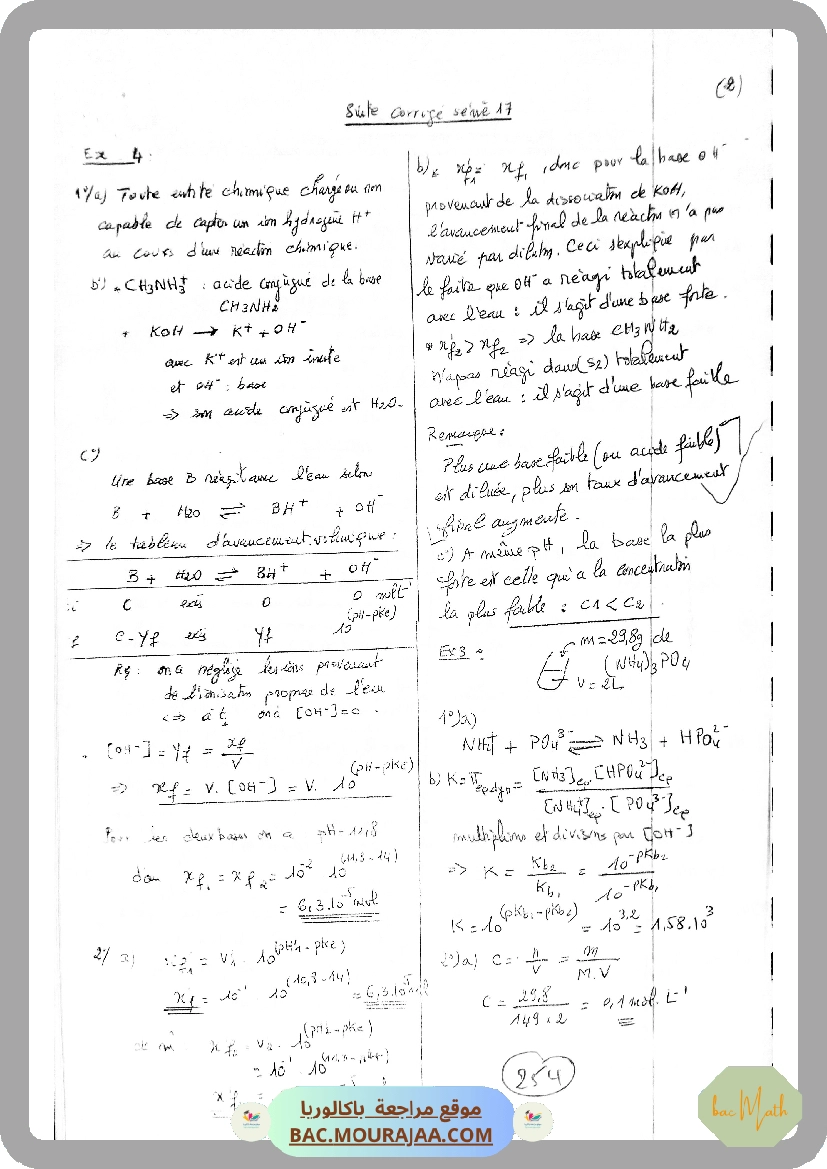 (2)
Suite corrigé série 17
Ex 4:
1°/a) Toute entité chimique chargée ou non
capable de capter un ion hydrogène H⁺
au cours d'une réaction chimique.
b°) * CH3NH3⁺ : acide conjugué de la base
CH3NH2
* KOH → K⁺ + OH⁻
avec K⁺ est un ion inerte
et OH⁻ : base
⇒ son acide conjugué est H2O.
c°)
Une base B réagit avec l'eau selon
B + H2O ⇌ BH⁺ + OH⁻
⇒ le tableau d'avancement volumique :
B + H2O ⇌ BH⁺ + OH⁻
C excès 0 0
C-yf excès yf 10^(pH-pKe)
Rq : on a négligé les ions provenant
de l'ionisation propre de l'eau
⇔ à t on a [OH⁻]=0.
[OH⁻] = yf = xf/V
⇒ xf = V. [OH⁻] = V. 10^(pH-pKe)
Pour les deux bases on a pH=11,8
donc xf1 = xf2 = 10⁻² 10^(11,8-14)
= 6,3.10⁻⁵ mol
2°/ a) x'f1 = V1. 10^(pH'1-pKe)
x'f = 10⁻¹ . 10^(10,8-14) = 6,3.10⁻⁵
x'f2 = V2. 10^(pH'2-pKe)
= 10⁻¹ . 10
x'f =
b) * x'f1 = xf1, donc pour la base OH⁻
provenant de la dissociation de KOH,
l'avancement final de la réaction n'a pas
varié par dilution. Ceci s'explique par
le faite que OH⁻ a réagi totalement
avec l'eau : il s'agit d'une base forte.
* x'f2 > xf2 ⇒ la base CH3NH2
n'a pas réagi dans (S2) totalement
avec l'eau : il s'agit d'une base faible
Remarque :
Plus une base faible (ou acide faible)
est diluée, plus son taux d'avancement
final augmente.
c°) A même pH, la base la plus
forte est celle qui a la concentration
la plus faible : C1 < C2.
Ex 3 :
m=29,8g de
(NH4)3PO4
V=2L
1°/a)
NH4⁺ + PO4³⁻ ⇌ NH3 + HPO4²⁻
b) K = π = [NH3]. [HPO4²⁻] / [NH4⁺]. [PO4³⁻]
multiplions et divisons par [OH⁻]
⇒ K = Kb2/Kb1 = 10^-pKb2 / 10^-pKb1
K = 10^(pKb1-pKb2) = 10^3,2 = 1,58.10³
2°)a) C = n/V = m/M.V
C = 29,8 / 149×2 = 0,1 mol. L⁻¹
254
موقع مراجعة باكالوريا
BAC.MOURAJAA.COM
bac Math